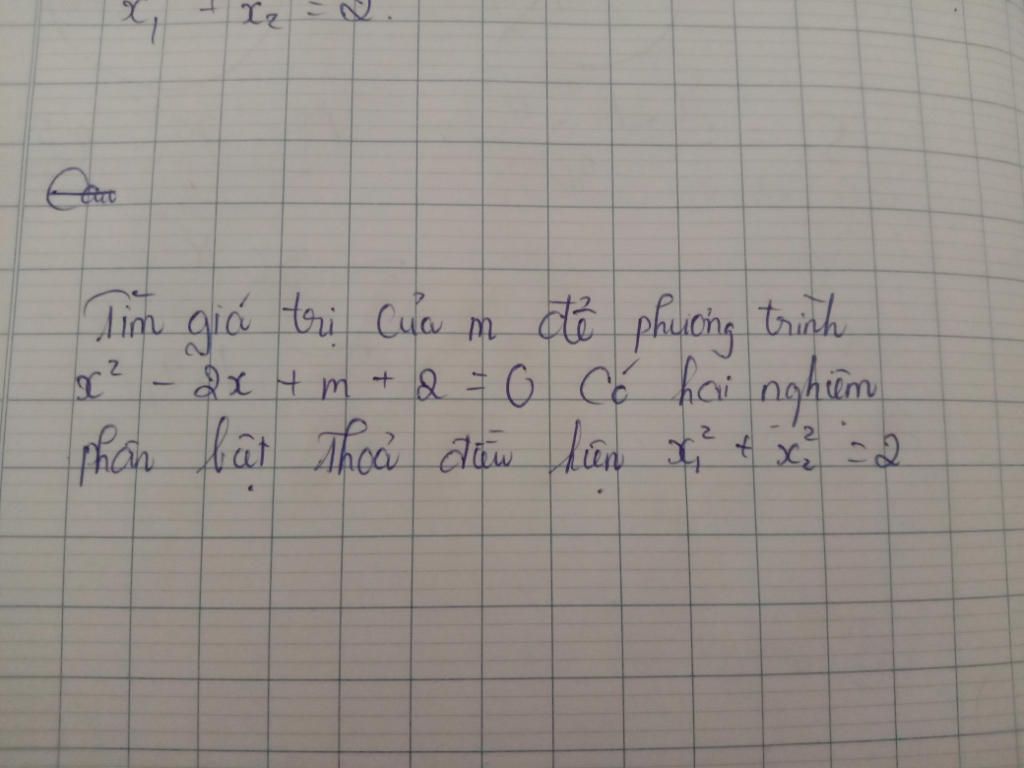 x₁ + x₂ = 2.
Tìm giá trị của m để phương trình
x² - 2x + m + 2 = 0 Có hai nghiệm
phân biệt Thoả điều kiện x₁² + x₂² = 2